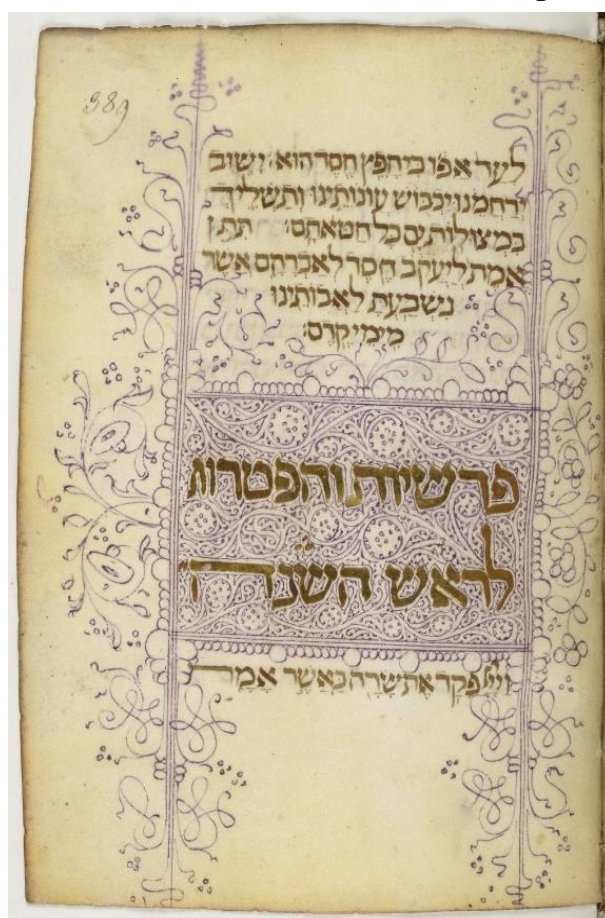 389
לעד אפו כי חפץ חסד הוא: ישוב
ירחמנו יכבוש עונותינו ותשליך
במצולות ים כל חטאתם: תתן
אמת ליעקב חסד לאברהם אשר
נשבעת לאבותינו
מימי קדם:
פרשיות והפטרות
לראש השנה
וייי פקד את שרה כאשר אמר